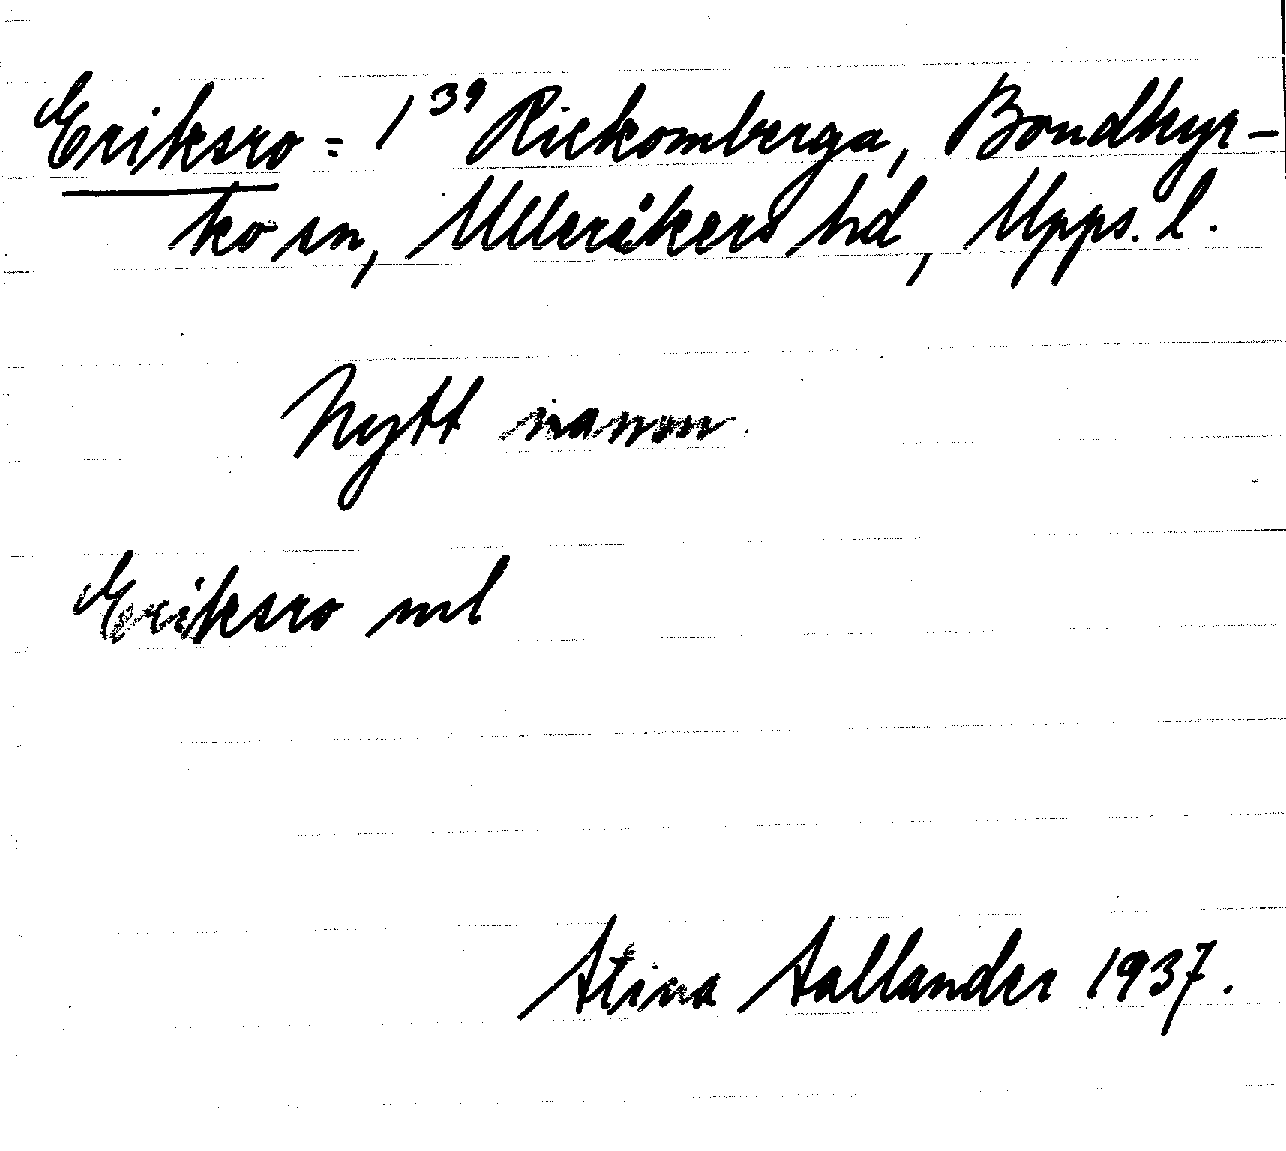 Eriksro = 1³⁹ Rickomberga, Bondkyr-
ko sn, Ulleråkers hd, Upps. l.
Nytt namn.
Eriksro ml
Stina Sallander 1937.